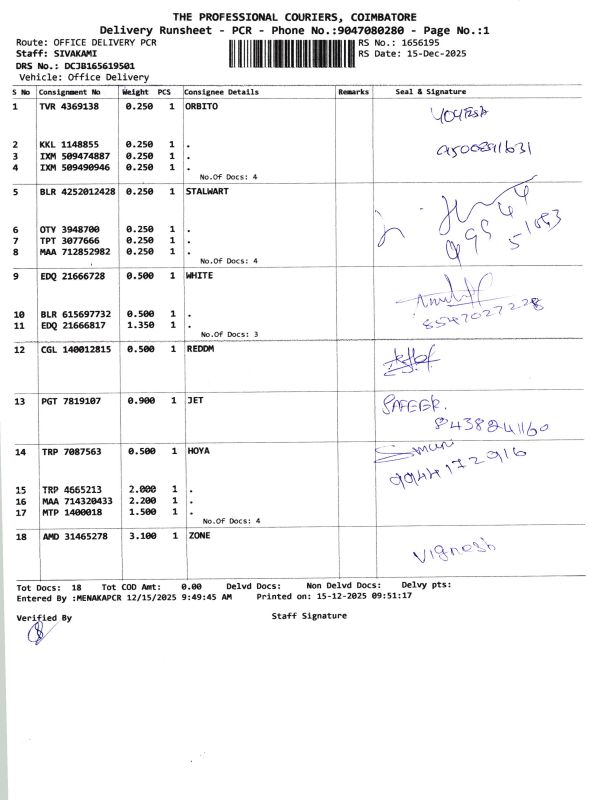 THE PROFESSIONAL COURIERS, COIMBATORE
Delivery Runsheet - PCR - Phone No.:9047080280 - Page No.:1
Route: OFFICE DELIVERY PCR RS No.: 1656195
Staff: SIVAKAMI RS Date: 15-Dec-2025
DRS No.: DCJB165619501
Vehicle: Office Delivery
S No Consignment No Weight PCS Consignee Details Remarks Seal & Signature
1 TVR 4369138 0.250 1 ORBITO
2 KKL 1148855 0.250 1 .
3 IXM 509474887 0.250 1 .
4 IXM 509490946 0.250 1 .
No.Of Docs: 4
5 BLR 4252012428 0.250 1 STALWART
6 OTY 3948700 0.250 1 .
7 TPT 3077666 0.250 1 .
8 MAA 712852982 0.250 1 .
No.Of Docs: 4
9 EDQ 21666728 0.500 1 WHITE
10 BLR 615697732 0.500 1 .
8547027228
11 EDQ 21666817 1.350 1 .
No.Of Docs: 3
12 CGL 140012815 0.500 1 REDDM
13 PGT 7819107 0.900 1 JET SAFEER.
14 TRP 7087563 0.500 1 HOYA
9944172916
15 TRP 4665213 2.000 1 .
16 MAA 714320433 2.200 1 .
17 MTP 1400018 1.500 1 .
No.Of Docs: 4
18 AMD 31465278 3.100 1 ZONE Vignesh
Tot Docs: 18 Tot COD Amt: 0.00 Delvd Docs: Non Delvd Docs: Delvy pts:
Entered By :MENAKAPCR 12/15/2025 9:49:45 AM Printed on: 15-12-2025 09:51:17
Verified By Staff Signature